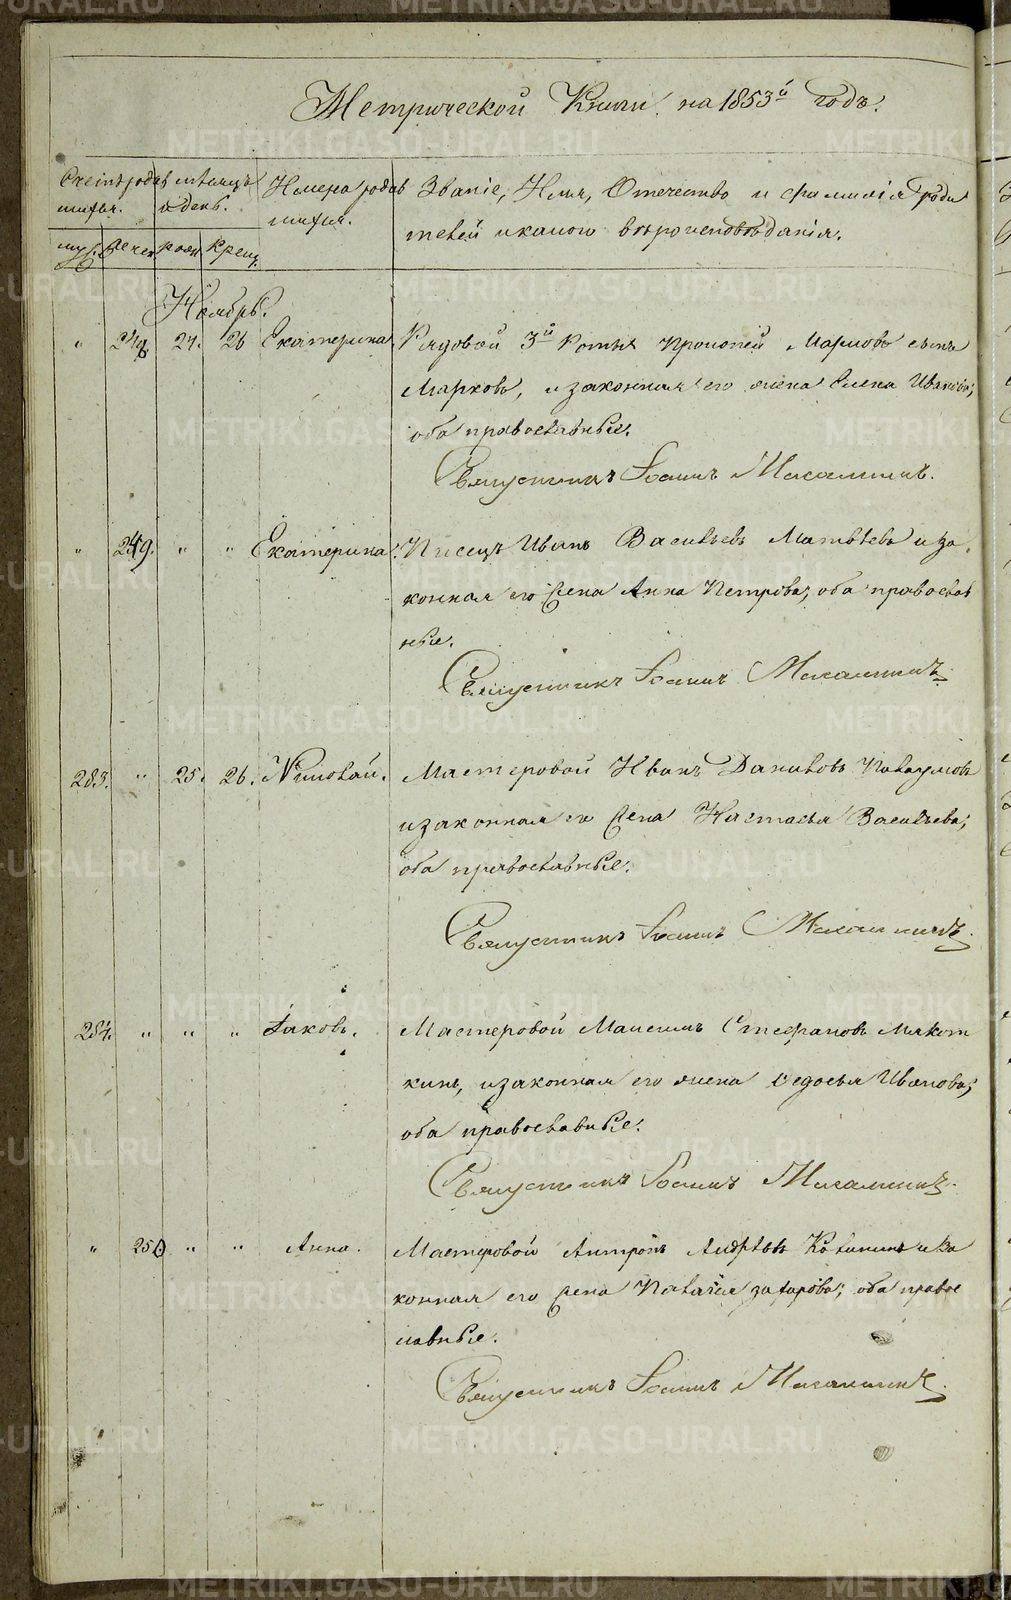 Метрической Книги на 1853й годъ.
Счетъ родив Мѣсяцъ Имена родив Званіе, Имя, Отечество и фамилія роди
шихся. и день. шихся. телей и какого вѣроисповѣданія.
муж. жен. рож. крещ.
Ноябрь.
" 248 24. 26 Екатерина. Рядовой 3й роты Прокопей Марковъ сынъ
Марковъ, и законная его жена Елена Иванова;
оба православные.
Священникъ Іоаннъ
" 249. " " Екатерина. Писецъ Иванъ Васильевъ Матвѣевъ и за
конная его жена Анна Петрова; оба православ
ные.
Священникъ Іоаннъ
283. " 25. 26. Николай. Мастеровой Иванъ Даниловъ
и законная его жена Настасья Васильева;
оба православные.
Священникъ Іоаннъ
284. " " " Іаковъ. Мастеровой Максимъ Стефановъ Мякот
кинъ, и законная его жена Федосья Иванова;
оба православные.
Священникъ Іоаннъ
" 250 " " Анна. Мастеровой Антропъ Андрѣевъ и за
конная его жена Пелагея Захарова; оба правос
лавные.
Священникъ Іоаннъ
METRIKI.GASO-URAL.RU